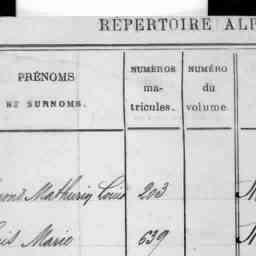 RÉPERTOIRE ALP
PRÉNOMS
ET SURNOMS.
NUMÉROS
ma-
tricules.
NUMÉRO
du
volume.
Mathurin Louis 203
Marie 639